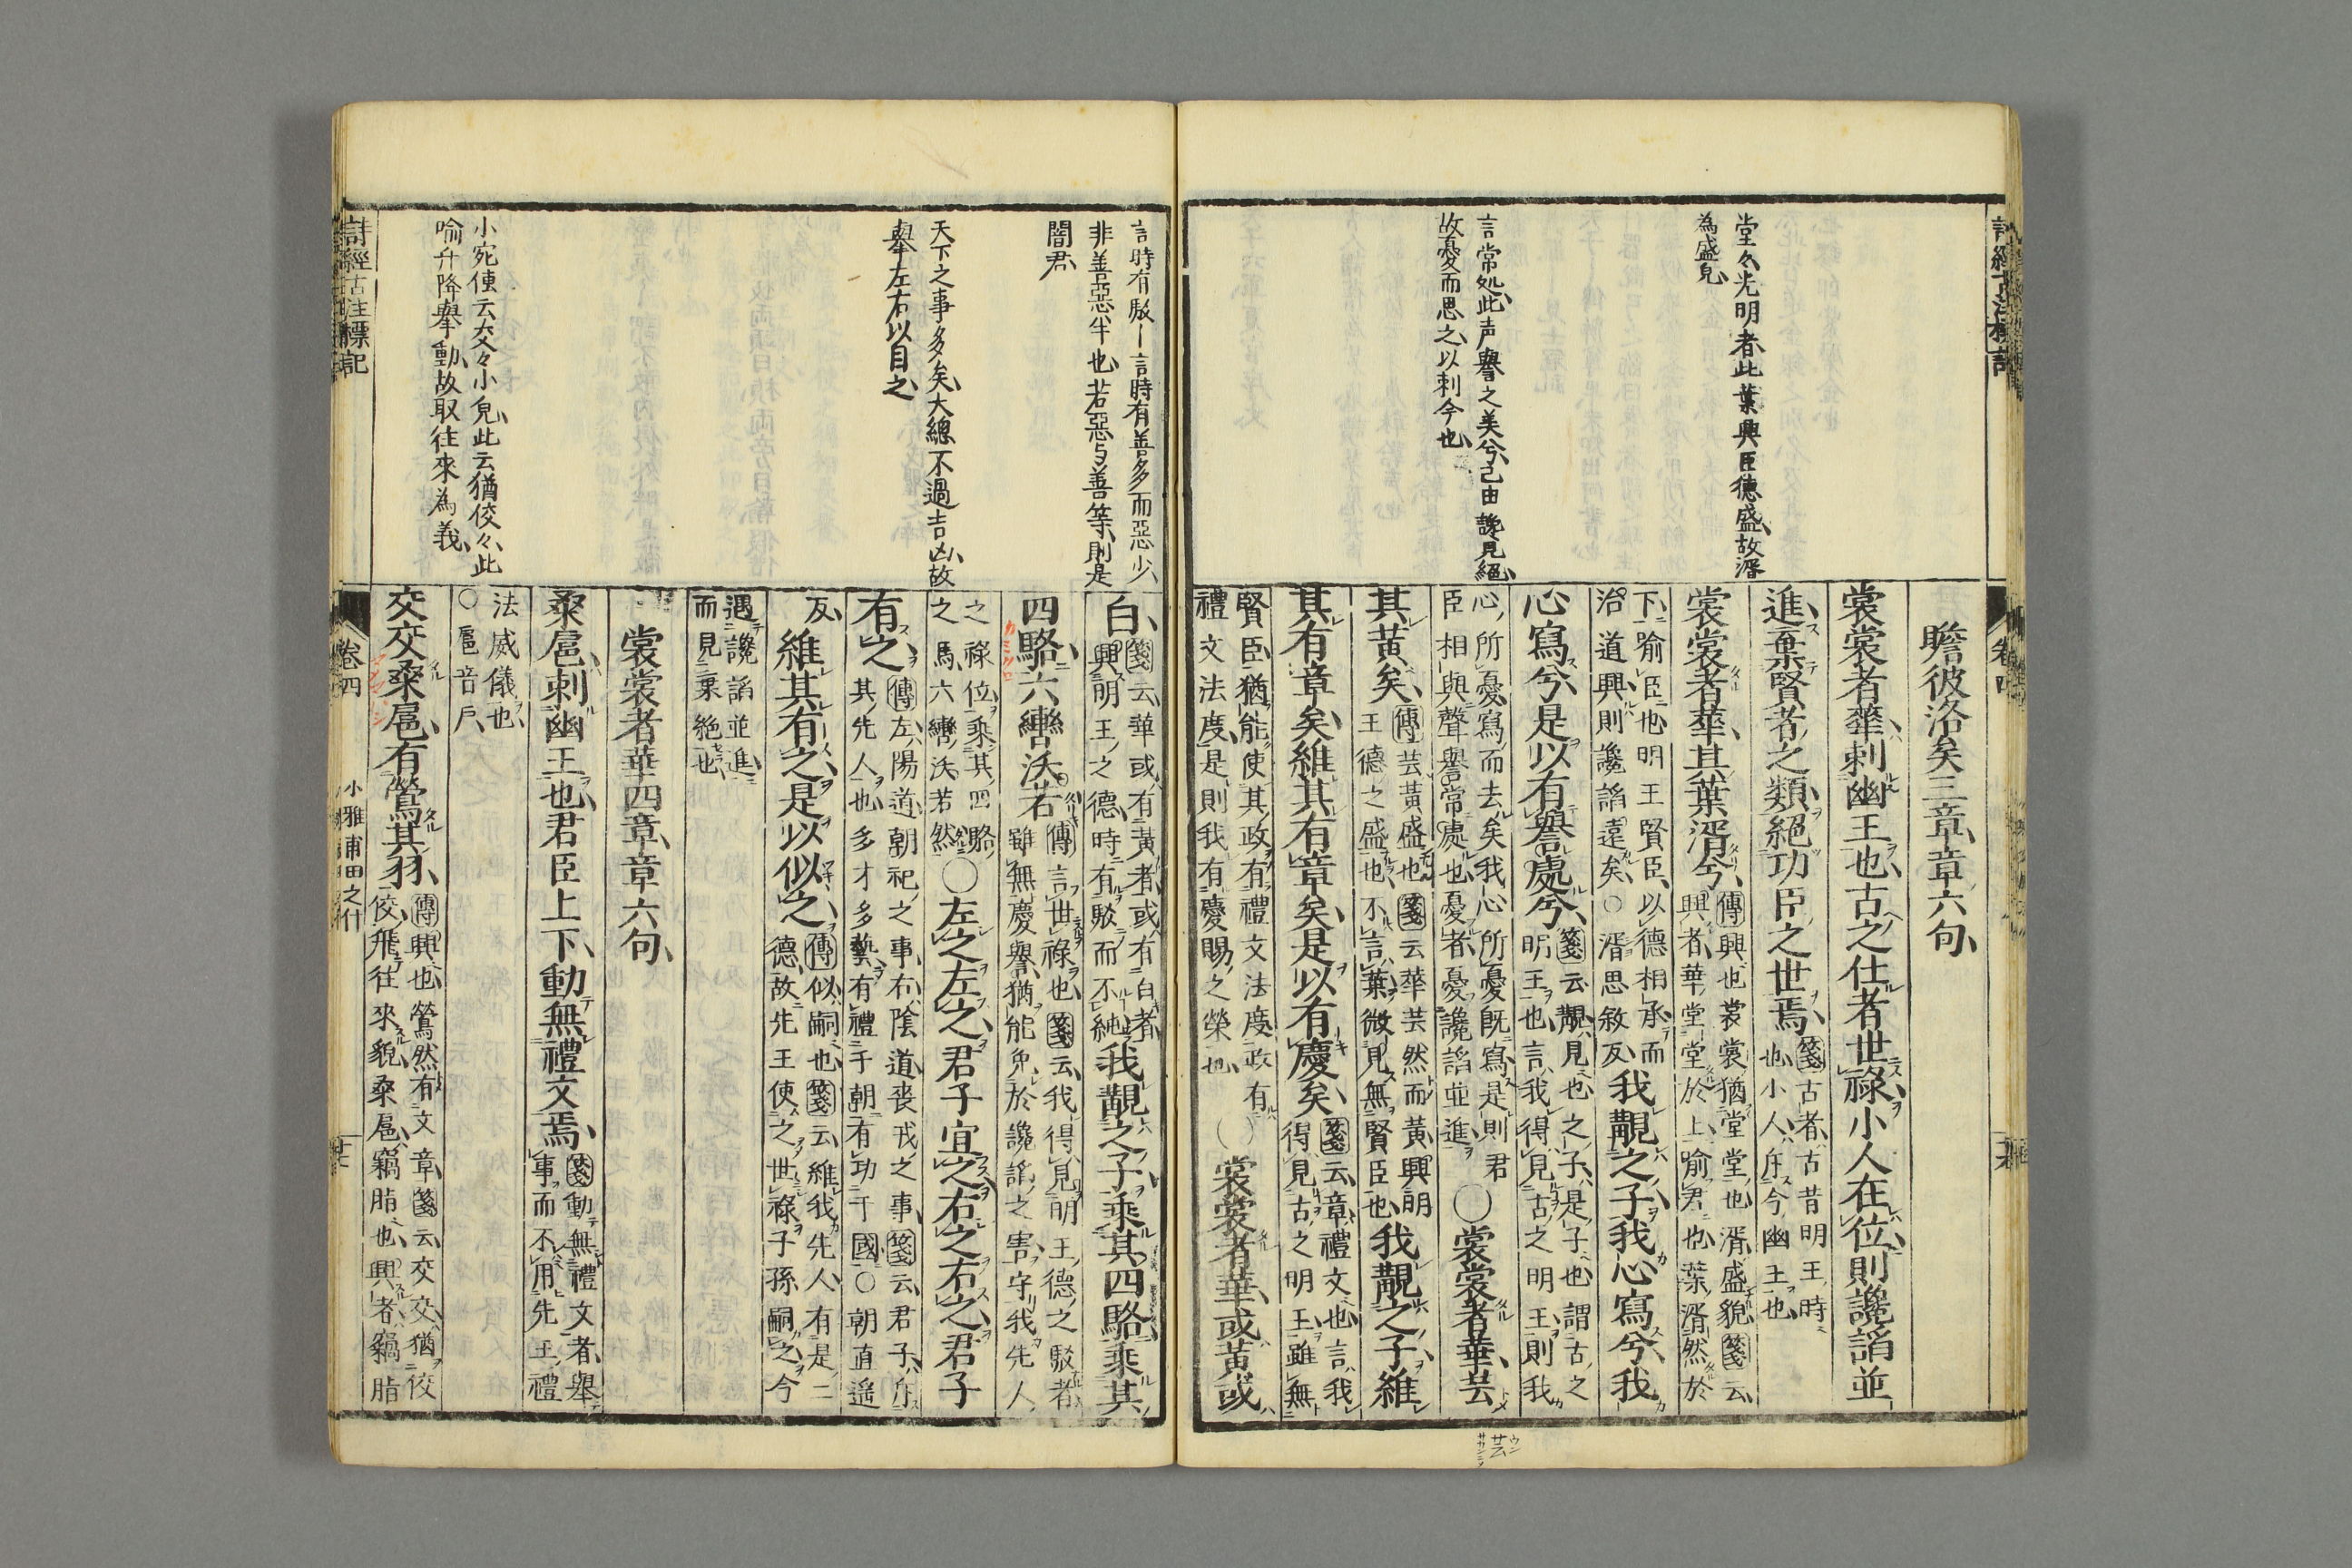 堂々光明者此葉興臣徳盛故湑
為盛皃
言常処此声譽之美兮己由讒見絕
故憂而思之以刺今也
瞻彼洛矣三章章六句
裳裳者華刺幽王也古之仕者世祿小人在位則讒諂並
進棄賢者之類絕功臣之世焉
箋云古者古昔明王時
也小人斥今幽王也
裳裳者華其葉湑兮
傳興也裳裳猶堂堂也湑盛貌箋云
興者華堂堂於上喻君也葉湑然於
下喻臣也明王賢臣以德相承而
治道興則讒諂遠矣○湑思敘反
我覯之子我心寫兮我
心寫兮是以有譽處兮
箋云覯見也之子是子也謂古之
明王也言我得見古之明王則我
心所憂寫而去矣我心所憂旣寫是則君
臣相與聲譽常處也憂者憂讒諂並進
○裳裳者華芸
其黃矣
傳芸黃盛也箋云華芸然而黃興明
王德之盛也不言葉微見無賢臣也
我覯之子維
其有章矣維其有章矣是以有慶矣
箋云章禮文也言我
得見古之明王雖無
賢臣猶能使其政有禮文法度政有
禮文法度是則我有慶賜之榮也
○裳裳者華或黃或
詩經古注標記
卷四
言時有駁—言時有善多而惡少
非善惡半也若惡与善等則是
闇君
天下之事多矣大總不過吉凶故
舉左右以目之
小宛傳云交々小皃此云猶佼々此
喻升降舉動故取往來為義
白
箋云華或有黃者或有白者
興明王之德時有駁而不純
我覯之子乘其四駱乘其
四駱六轡沃若
傳言世祿也箋云我得見明王德之駁者
雖無慶譽猶能免於讒諂之害守我先人
之祿位乘其四駱
之馬六轡沃若然
○左之左之君子宜之右之右之君子
有之
傳左陽道朝祀之事右陰道喪戎之事箋云君子斥
其先人也多才多藝有禮于朝有功于國○朝直遙
反
維其有之是以似之
傳似嗣也箋云維我先人有是二
德故先王使之世祿子孫嗣之今
遇讒諂並進
而見棄絕也
裳裳者華四章章六句
桒扈刺幽王也君臣上下動無禮文焉
箋動無禮文者舉
事而不用先王禮
法威儀也
○扈音戶
交交桒扈有鶯其羽
傳興也鶯然有文章箋云交交猶佼
佼飛往來貌桒扈竊脂也興者竊脂
詩經古注標記
卷四
小雅甫田之什
十七